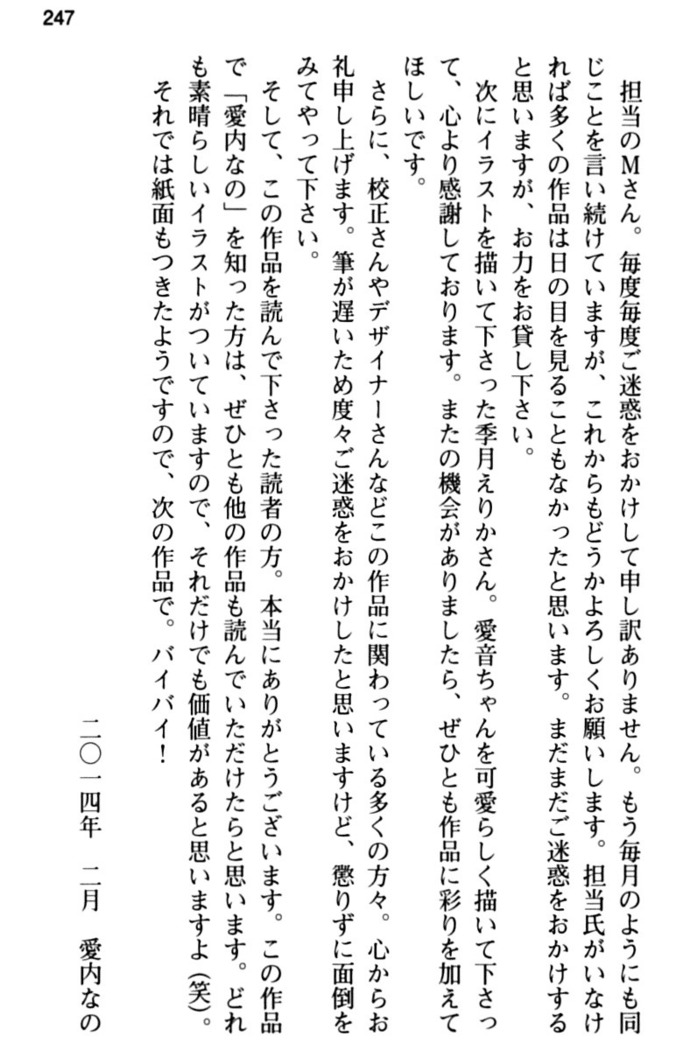 247
担当のMさん。毎度毎度ご迷惑をおかけして申し訳ありません。もう毎月のようにも同
じことを言い続けていますが、これからもどうかよろしくお願いします。担当氏がいなけ
れば多くの作品は日の目を見ることもなかったと思います。まだまだご迷惑をおかけする
と思いますが、お力をお貸し下さい。
次にイラストを描いて下さった季月えりかさん。愛音ちゃんを可愛らしく描いて下さっ
て、心より感謝しております。またの機会がありましたら、ぜひとも作品に彩りを加えて
ほしいです。
さらに、校正さんやデザイナーさんなどこの作品に関わっている多くの方々。心からお
礼申し上げます。筆が遅いため度々ご迷惑をおかけしたと思いますけど、懲りずに面倒を
みてやって下さい。
そして、この作品を読んで下さった読者の方。本当にありがとうございます。この作品
で「愛内なの」を知った方は、ぜひとも他の作品も読んでいただけたらと思います。どれ
も素晴らしいイラストがついていますので、それだけでも価値があると思いますよ(笑)。
それでは紙面もつきたようですので、次の作品で。バイバイ!
二〇一四年 二月 愛内なの